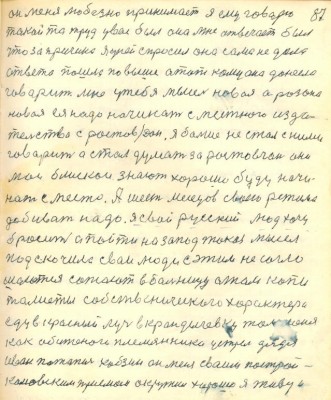 он меня любезно принимает я ему говорю 87
такой та труд у вас был она мне отвечает был
что за причина я у ней спросил она сама не дала
ответа пошла повыше а там кому она донесла
говарит мне у тебя мысел новоя а розона
новоя ея надо начинат с местного изда-
телства с ростов/дон. я болше не стал с ними
говарит а стал думат за ростовчан они
мои близкии знают хорошо буду начи-
нат с места. А шест месецов своего
добиват надо. я свой русский люд хочу
бросит/ а пойти на запод такоя мысел
подскочила сваи люди с этим не согло
шаются сожают в балницу а там копи
талисты собственического характера
еду в красный луч в крандычевку там меня
как обиженого племянника устрел дядя
иван потапич хобзин он меня сваим построй-
кановским приемом окружил хорошо я живу и